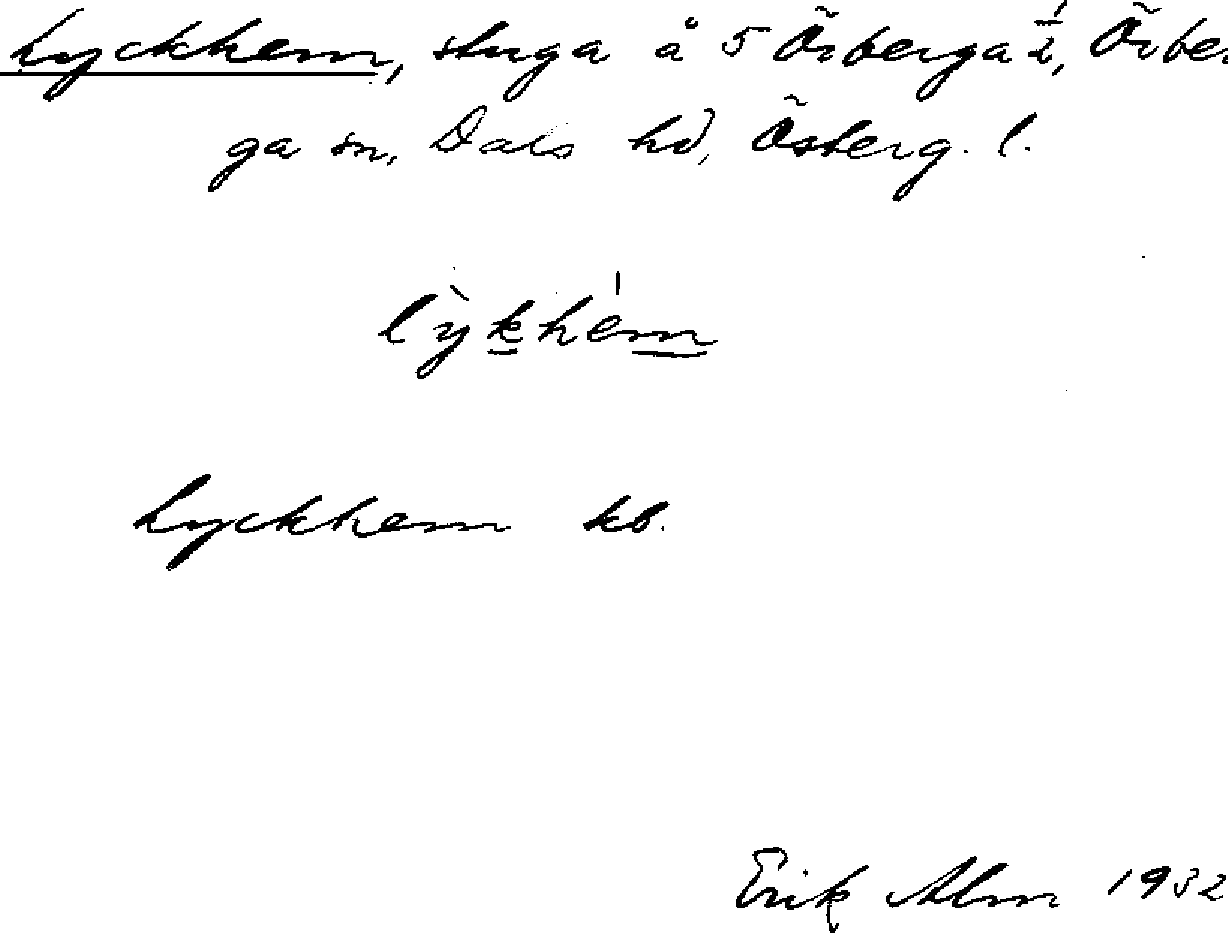 Lyckhem, stuga å 5 Örberga 1/2, Örber
ga sn, Dals hd, Österg. l.
lỳkhém
Lyckhem kb.
Erik Alm 1932